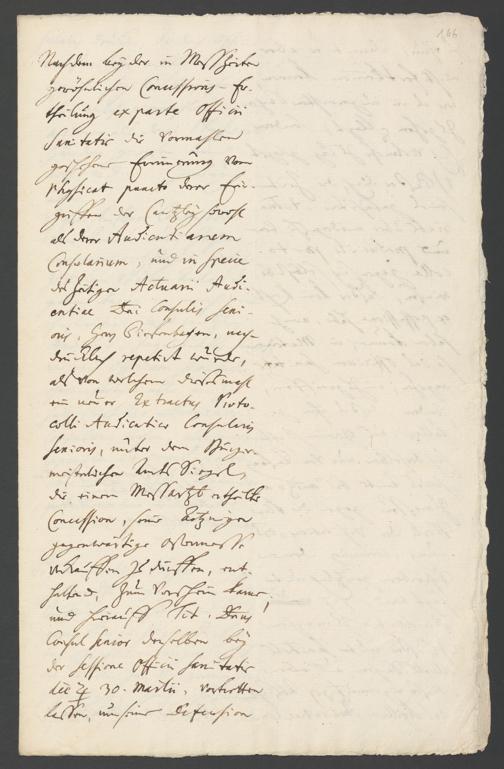 166
Nachdem bey der in Messzeiten
gewöhnlichen Concessions-Er-
theilung ex parte Officii
Sanitatis die vormahlen
geschehene Erinnerung vom
Physicat puncto derer Ein-
griffen der Cantzley sowohl
als derer Audientianern
Consularium, und in specie
des zeitigen Actuarii Audi-
entiae Dni Consulis Seni-
oris, Herr nach-
drücklich repetirt worden,
als von welchem diesesmahl
ein neuer Extractus Proto-
colli Audientiae Consularis
Senioris, unter dem Burger-
meisterlichen Amts Siegel,
die einem Messartzt ertheilte
Concession, seine
gegenwärtige Ostermesse
verkauffen zu dürffen, ent-
haltend, zum Vorschein kame;
und hierauff Tit. Dnus
Consul Senior denselben bey
der Sessione Officii Sanitatis
die 30. Martii, vortretten
lassen, um seine Defension